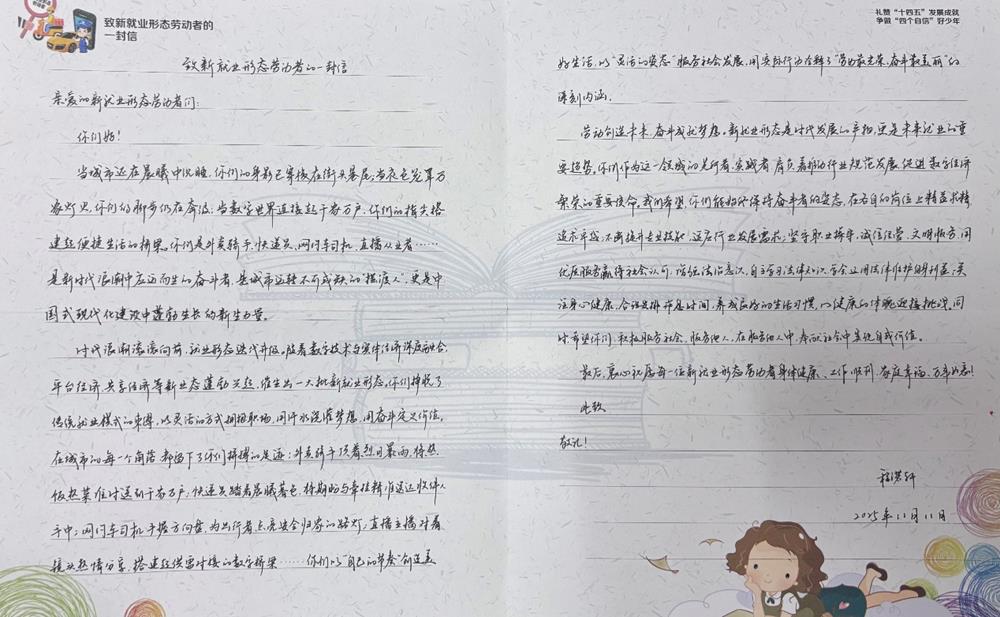 致新就业形态劳动者的
一封信
致新就业形态劳动者的一封信
亲爱的新就业形态劳动者们:
你们好!
当城市还在晨曦中沉睡,你们的身影已穿梭在街头巷尾;当夜色笼罩万
家灯火,你们的脚步仍在奔波;当数字世界连接起千家万户,你们的指尖搭
建起便捷生活的桥梁。你们是外卖骑手、快递员、网约车司机、直播从业者……
是新时代浪潮中应运而生的奋斗者,是城市运转不可或缺的“摆渡人”,更是中
国式现代化建设中蓬勃生长的新生力量。
时代浪潮滚滚向前,就业形态迭代升级。随着数字技术与实体经济深度融合,
平台经济、共享经济等新业态蓬勃兴起,催生出一大批新就业形态。你们挣脱了
传统就业模式的束缚,以灵活的方式拥抱职场,用汗水浇灌梦想,用奋斗定义价值。
在城市的每一个角落,都留下了你们拼搏的足迹:外卖骑手顶着烈日暴雨,将热
饭热菜准时送到千家万户;快递员踏着晨曦暮色,将期盼与牵挂精准送达收件人
手中;网约车司机手握方向盘,为出行者点亮安全归家的路灯;直播主播对着
镜头热情分享,搭建起供需对接的数字桥梁……你们以“自己的节奏”创造美
礼赞“十四五”发展成就
争做“四个自信”好少年
好生活,以“灵活的姿态”服务社会发展,用实际行动诠释了“劳动最光荣、奋斗最美丽”的
深刻内涵。
劳动创造未来,奋斗成就梦想。新就业形态是时代发展的产物,更是未来就业的重
要趋势。你们作为这一领域的先行者、实践者,肩负着推动行业规范发展、促进数字经济
繁荣的重要使命。我们希望,你们能始终保持奋斗者的姿态,在各自的岗位上精益求精
追求卓越,不断提升专业技能,适应行业发展需求;坚守职业操守,诚信经营、文明服务,用
优质服务赢得社会认可;增强法治意识,自主学习法律知识,学会运用法律维护自身利益;关
注身心健康,合理安排作息时间,养成良好的生活习惯,以健康的体魄迎接挑战。同
时,希望你们积极服务社会、服务他人,在服务他人中、奉献社会中实现自我价值。
最后,衷心祝愿每一位新就业形态劳动者身体健康、工作顺利、家庭幸福、万事如意!
此致
敬礼!
2025年11月11日